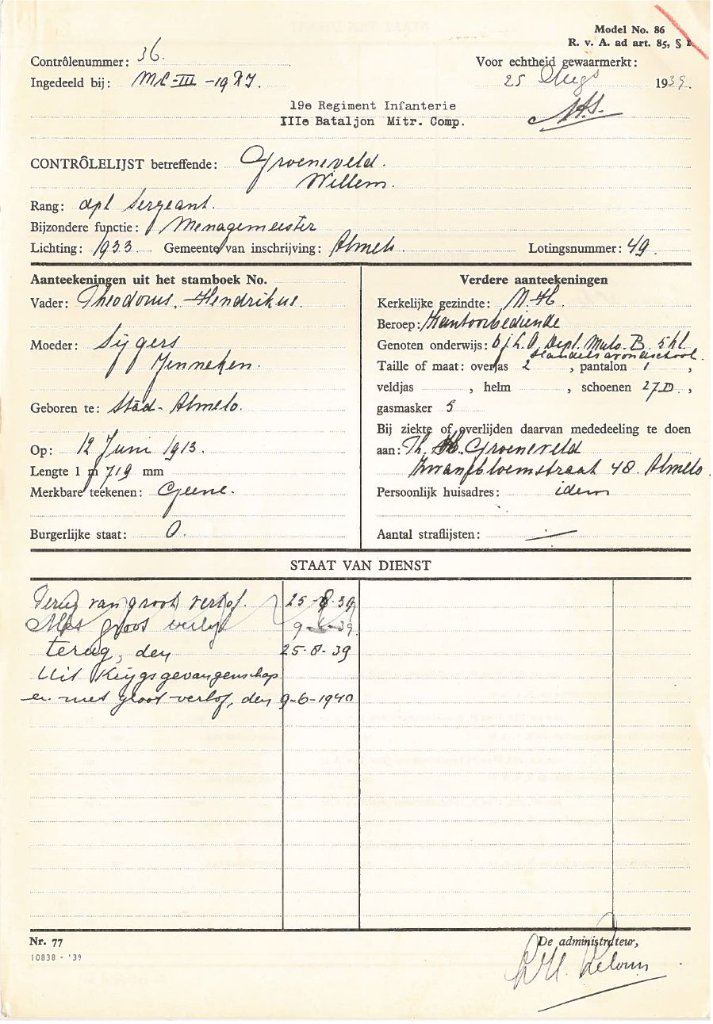 Model No. 86
R. v. A. ad art. 85, §
Contrôlenummer: 36
Voor echtheid gewaarmerkt:
Ingedeeld bij: MC-III-19 R.I.
25 Aug 1939
19e Regiment Infanterie
IIIe Bataljon Mitr. Comp.
CONTRÔLELIJST betreffende: Groeneveld.
Willem.
Rang: dpl Sergeant.
Bijzondere functie: Menagemeester
Lichting: 1933 Gemeente van inschrijving: Almelo Lotingsnummer: 49
Aanteekeningen uit het stamboek No.
Vader: Theodorus Hendrikus
Moeder: Sijgers
Jenneken.
Geboren te: Stad-Almelo.
Op: 12 Juni 1913.
Lengte 1 m 719 mm
Merkbare teekenen: Geene.
Burgerlijke staat: O.
Verdere aanteekeningen
Kerkelijke gezindte: N.H.
Beroep: Kantoorbediende
Genoten onderwijs: 6 j L.O. Dipl. Mulo-B. 5 kl
Handelsavondschool.
Taille of maat: overjas 2, pantalon 1,
veldjas , helm , schoenen 27 D,
gasmasker 5
Bij ziekte of overlijden daarvan mededeeling te doen
aan: Th. Groeneveld
Zwanebloemstraat 48 Almelo
Persoonlijk huisadres: idem
Aantal straflijsten: —
STAAT VAN DIENST
Terug van groot verlof. 25-8-39
Met groot verlof 9- -39
terug, den 25-8-39
Uit Krijgsgevangenschap
en met groot verlof, den 9-6-1940
Nr. 77
10838 - '39
De administrateur,